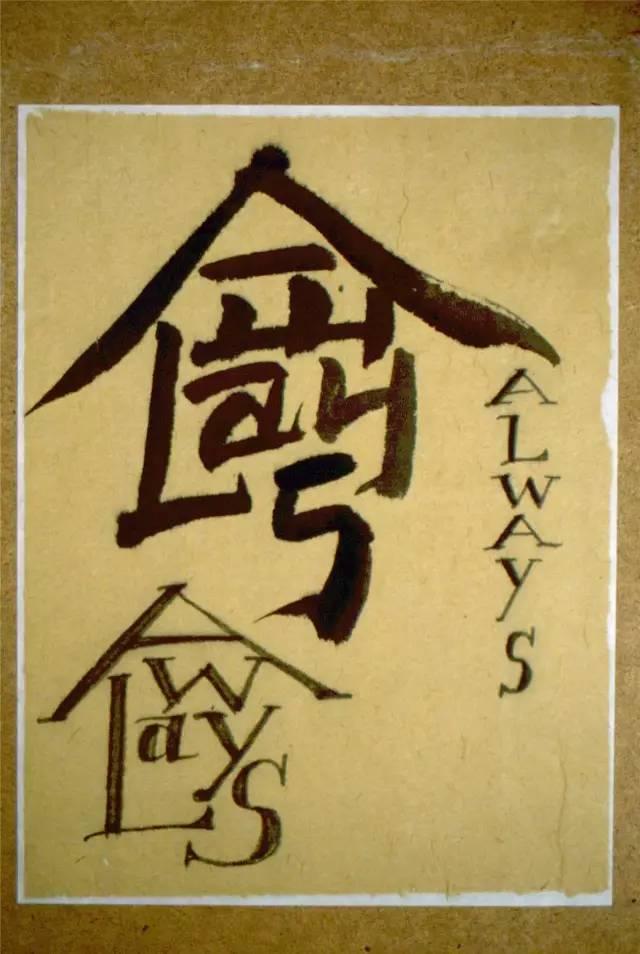 ALWayS
ALWayS
ALWAYS